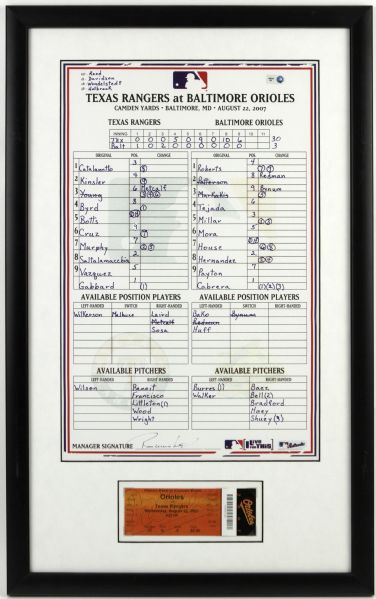 Reed
Davidson
Wendelstedt
Holbrook
TEXAS RANGERS at BALTIMORE ORIOLES
CAMDEN YARDS · BALTIMORE, MD · AUGUST 22, 2007
TEXAS RANGERS BALTIMORE ORIOLES
INNING 1 2 3 4 5 6 7 8 9 10 11
Tex 0 0 0 5 0 9 0 10 6 30
Balt 1 0 2 0 0 0 0 0 0 3
ORIGINAL POS CHANGE ORIGINAL POS CHANGE
1 Catalanotto 3 1 Roberts 4
2 Kinsler 4 2 Patterson 8 Redman
3 Young 6 Metcalf 3 Markakis 9 Bynum
4 Byrd 8 4 Tejada 6
5 Botts DH 5 Millar 3
6 Cruz 9 6 Mora 5
7 Murphy 7 7 House DH
8 Saltalamacchia 2 8 Hernandez 2
9 Vazquez 5 9 Payton 7
Gabbard 1 (1) Cabrera 1 (1)(2)(3)
AVAILABLE POSITION PLAYERS AVAILABLE POSITION PLAYERS
LEFT-HANDED SWITCH RIGHT-HANDED LEFT-HANDED SWITCH RIGHT-HANDED
Wilkerson Laird Bako Bynum
Metcalf Redman
Sosa Huff
AVAILABLE PITCHERS AVAILABLE PITCHERS
LEFT-HANDED RIGHT-HANDED LEFT-HANDED RIGHT-HANDED
Wilson Benoit Burres(1) Baez
Francisco Walker Bell(2)
Littleton(1) Bradford
Wood Hoey
Wright Shuey(3)
MANAGER SIGNATURE
Orioles
Texas Rangers
Orioles